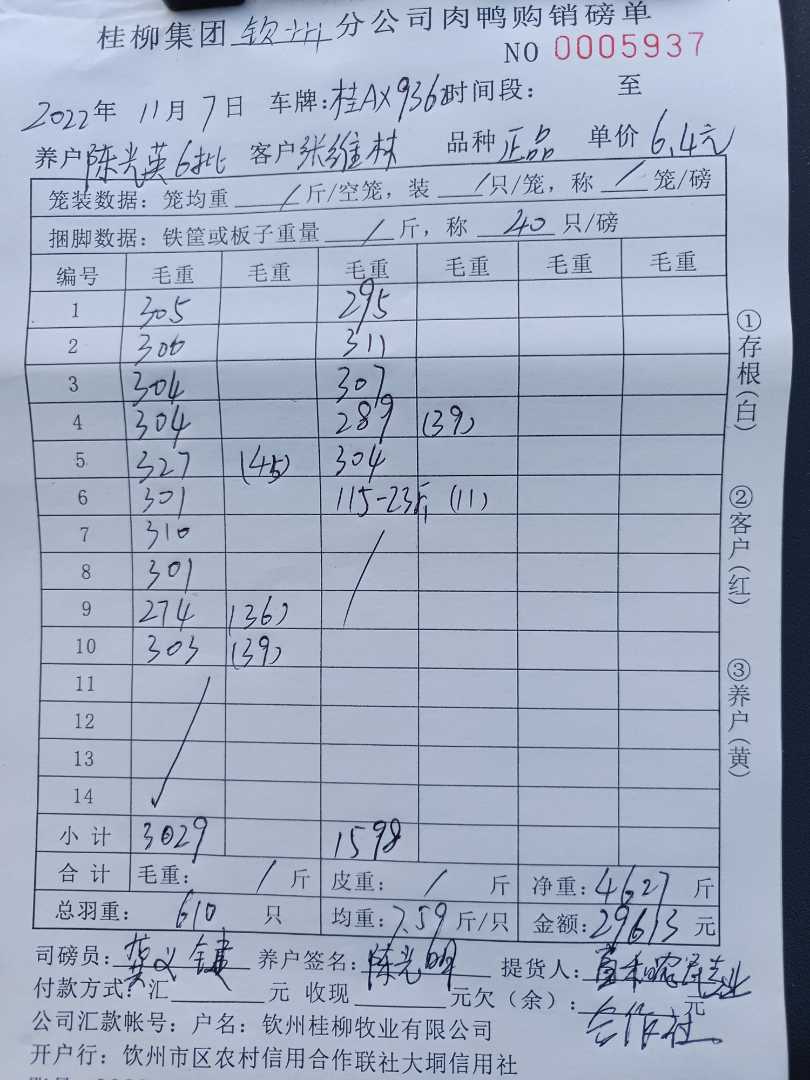 桂柳集团钦州分公司肉鸭购销磅单
NO 0005937
2022年 11月 7日 车牌:桂AX936 时间段: 至
养户陈光英6批 客户张维林 品种正品 单价6.4元
笼装数据:笼均重 / 斤/空笼,装 / 只/笼,称 / 笼/磅
捆脚数据:铁筐或板子重量 / 斤,称 40 只/磅
编号 毛重 毛重 毛重 毛重 毛重 毛重
1 305 295
2 300 311
3 304 307
4 304 289 (39)
5 327 (45) 304
6 301 115-23斤 (11)
7 310
8 301
9 274 (36)
10 303 (39)
11
12
13
14
小计 3029 1598
合计 毛重: / 斤 皮重: / 斤 净重:4627 斤
总羽重: 610 只 均重:7.59 斤/只 金额:29613 元
司磅员:龚义键 养户签名:陈光明 提货人:
合作社。
付款方式:汇 元 收现 元欠(余): 元
公司汇款帐号:户名:钦州桂柳牧业有限公司
开户行:饮州市区农村信用合作联社大垌信用社
①存根(白)
②客户(红)
③养户(黄)